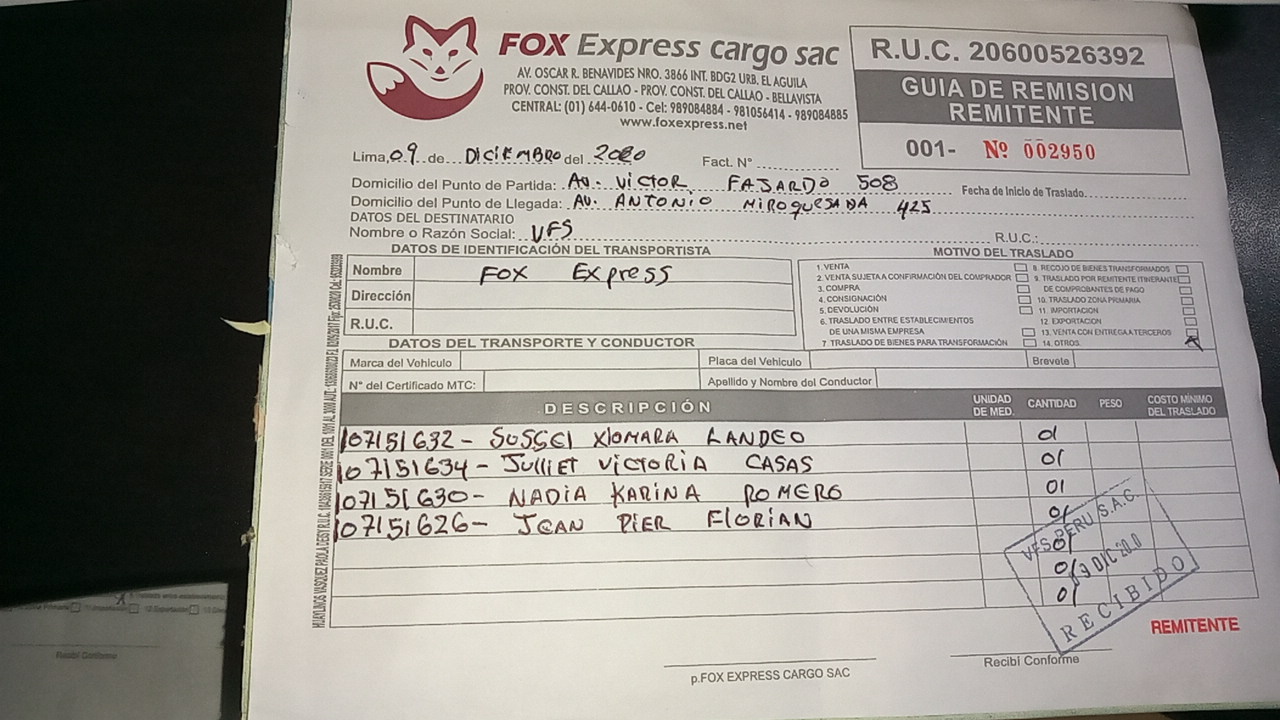 FOX Express cargo sac
AV. OSCAR R. BENAVIDES NRO. 3866 INT. BDG2 URB. EL AGUILA
PROV. CONST. DEL CALLAO - PROV. CONST. DEL CALLAO - BELLAVISTA
CENTRAL: (01) 644-0610 - Cel: 989084884 - 981056414 - 989084885
www.foxexpress.net
R.U.C. 20600526392
GUIA DE REMISION
REMITENTE
001- Nº 002950
Lima, 09 de DICIEMBRO del 2020 Fact. N°
Domicilio del Punto de Partida: AV. VICTOR FAJARDO 508 Fecha de Inicio de Traslado
Domicilio del Punto de Llegada: AV. ANTONIO MIROQUESADA 425
DATOS DEL DESTINATARIO
Nombre o Razón Social: VFS R.U.C.:
DATOS DE IDENTIFICACIÓN DEL TRANSPORTISTA
Nombre FOX Express
Dirección
R.U.C.
MOTIVO DEL TRASLADO
1. VENTA
2. VENTA SUJETA A CONFIRMACIÓN DEL COMPRADOR
3. COMPRA
4. CONSIGNACIÓN
5. DEVOLUCIÓN
6. TRASLADO ENTRE ESTABLECIMIENTOS
DE UNA MISMA EMPRESA
7. TRASLADO DE BIENES PARA TRANSFORMACIÓN
8. RECOJO DE BIENES TRANSFORMADOS
9. TRASLADO POR REMITENTE ITINERANTE
DE COMPROBANTES DE PAGO
10. TRASLADO ZONA PRIMARIA
11. IMPORTACION
12. EXPORTACION
13. VENTA CON ENTREGA A TERCEROS
14. OTROS
DATOS DEL TRANSPORTE Y CONDUCTOR
Marca del Vehículo Placa del Vehículo Brevete
N° del Certificado MTC: Apellido y Nombre del Conductor
DESCRIPCIÓN UNIDAD DE MED. CANTIDAD PESO COSTO MÍNIMO DEL TRASLADO
107151632- SUSSEI XIOMARA LANDEO 01
107151634- JULLIET VICTORIA CASAS 01
107151630- NADIA KARINA ROMERO 01
107151626- JEAN PIER FLORIAN 01
01
01
01
VFS PERU S.A.C.
DIC 20
RECIBIDO
REMITENTE
p.FOX EXPRESS CARGO SAC
Recibí Conforme
Recibí Conforme